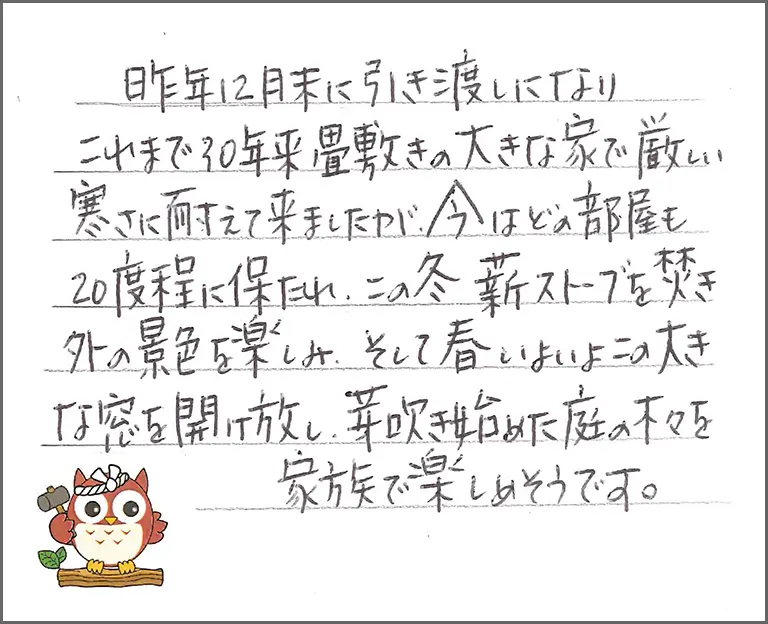 昨年12月末に引き渡しになり
これまで30年来畳敷きの大きな家で厳しい
寒さに耐えて来ましたが、今はどの部屋も
20度程に保たれ、この冬薪ストーブを焚き
外の景色を楽しみ、そして春いよいよこの大き
な窓を開け放し、芽吹き始めた庭の木々を
家族で楽しめそうです。